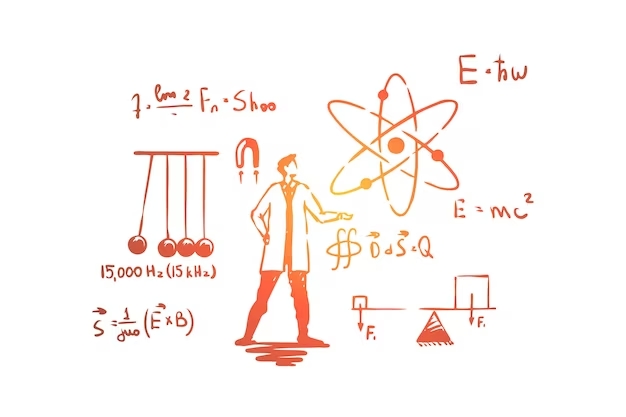 E = ħω
Fn = Shoo
E = mc²
∯ D⃗ dS⃗ = Q
15,000 Hz (15 kHz)
S⃗ = 1/μo (E⃗ × B)
F₁
F₁